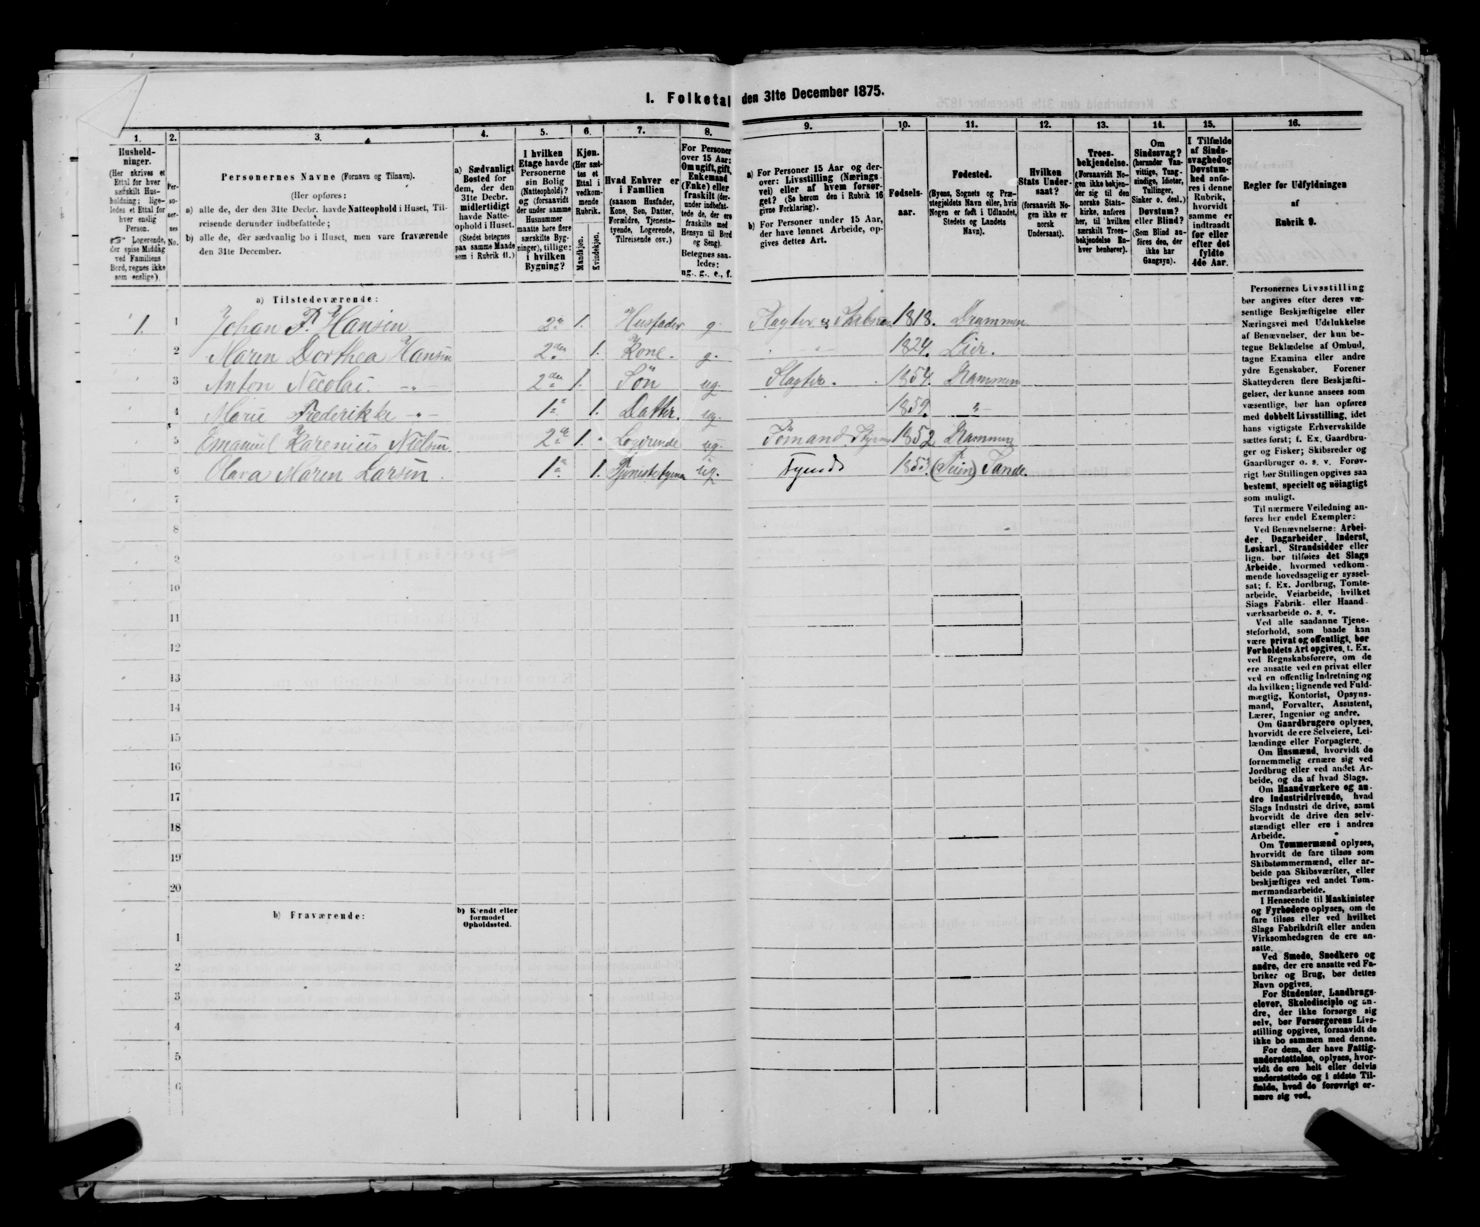 I. Folketal den 31te December 1875.
1. 2. 3. 4. 5. 6. 7. 8. 9. 10. 11. 12. 13. 14. 15. 16.
Husholdninger.
(Her skrives et
Ettal for hver
særskilt Husholdning;
ligeledes et Ettal for
enslig
Person.
Logerende,
der spise Middag
ved Familiens
Bord, regnes ikke
som enslige).
Personernes No.
Personernes Navne (Fornavn og Tilnavn).
(Her opføres:
a) alle de, der den 31te Decbr. havde Natteophold i Huset, Tilreisende derunder indbefattede;
b) alle de, der sædvanlig bo i Huset, men vare fraværende
den 31te December.
a) Sædvanligt
Bosted for
dem, der den
31te Decbr.
midlertidigt
havde Natteophold i Huset.
(Stedet betegnes
paa samme Maade
som i Rubrik 11.)
I hvilken
Etage havde
Personerne
sin Bolig
(Natteophold)?
og (forsaavidt
der under samme
Husnummer
maatte høre flere
særskilte Bygninger), tillige:
i hvilken
Bygning?
Kjøn.
(Her sættes et
Ettal i
vedkommende
Rubrik.
Mandkjøn.
Kvindekjøn.
Hvad Enhver er
i Familien
(saasom Husfader,
Kone, Søn, Datter,
Forældre, Tjenestetyende, Logerende,
Tilreisende osv.).
For Personer
over 15 Aar:
Om ugift, gift,
Enkemand
(Enke) eller
fraskilt (derunder indbefattede de, der ere
fraskilte med
Hensyn til Bord
og Seng).
Betegnes saaledes:
ug., g., e., f.
a) For Personer 15 Aar og derover: Livsstilling (Næringsvei) eller af hvem forsørget? (Se herom den i Rubrik 16
givne Forklaring).
b) For Personer under 15 Aar,
der have lønnet Arbeide, opgives dettes Art.
Fødselsaar.
Fødested.
(Byens, Sognets og Præstegjeldets Navn eller, hvis
Nogen er født i Udlandet,
Stedets og Landets
Navn).
Hvilken
Stats Undersaat?
(forsaavidt Nogen ikke er
norsk
Undersaat).
Troesbekjendelse.
(Forsaavidt Nogen ikke bekjender sig til den
norske Statskirke, anføres
her, til hvilken
særskilt Troesbekjendelse Enhver henhører).
Om
Sindssvag?
(herunder Vanvittige, Tungsindige, Idioter,
Tullinger,
Sinker o. desl.)
Døvstum?
eller Blind?
(Som Blind anføres den, der
ikke har
Gangsyn).
I Tilfælde
af Sindssvaghed og
Døvstumhed anføres i denne
Rubrik,
hvorvidt
samme er
indtraadt
før eller
efter det
fyldte
4de Aar.
Regler for Udfyldningen
af
Rubrik 9.
a) Tilstedeværende:
1. 1 Johan P. Hansen 2 1. Husfader g. 1818. Drammen
2 Maren Dorthea Hansen 2den 1. Kone. g. 1824. Lier.
3 Anton Nicolai — „ — 2den 1. Søn ug. Slagter. 1854. Drammen
4 Marie Frederikke — „ — 1 1. Datter. ug. 1859. „
5 Emanuel Nielsen. 2 1. Logerende ug. 1852 Drammen
6 Olava Maren Larsen 1 1. ug. Tyende
7
8
9
10
11
12
13
14
15
16
17
18
19
20
b) Fraværende:
b) Kjendt eller
formodet
Opholdssted.
1
2
3
4
5
6
Personernes Livsstilling
bør angives efter deres væsentlige Beskjæftigelse eller
Næringsvei med Udelukkelse
af Benævnelser, der kun betegne Beklædelse af Ombud,
tagne Examina eller andre
ydre Egenskaber. Forener
Skatteyderen flere Beskjæftigelser, der kunne ansees som
væsentlige, bør han opføres
med dobbelt Livsstilling, idet
hans vigtigste Erhvervskilde
sættes først; f. Ex. Gaardbruger og Fisker; Skibsreder og
Gaardbruger o. s. v. Forøvrigt bør Stillingen opgives saa
bestemt, specielt og nöiagtigt
som muligt.
Til nærmere Veiledning anføres her endel Exempler:
Ved Benævnelserne: Arbeider, Dagarbeider, Inderst,
Løskarl, Strandsidder eller
lign. bør tilføies det Slags
Arbeide, hvormed vedkommende hovedsagelig er sysselsat; f. Ex. Jordbrug, Tomtearbeide, Veiarbeide, hvilket
Slags Fabrik- eller Haandværksarbeide o. s. v.
Ved alle saadanne Tjenesteforhold, som baade kan
være privat og offentligt, bør
Forholdets Art opgives, t. Ex.
ved Regnskabsførere, om de
ere ansatte ved en privat eller
ved en offentlig Indretning og
da hvilken; lignende ved Fuldmægtig, Kontorist, Opsynsmand, Forvalter, Assistent,
Lærer, Ingeniør og andre.
Om Gaardbrugere oplyses,
hvorvidt de ere Selveiere, Leilændinge eller Forpagtere.
Om Husmænd, hvorvidt de
fornemmelig ernære sig ved
Jordbrug eller ved andet Arbeide, og da af hvad Slags.
Om Haandværkere og andre Industridrivende, hvad
Slags Industri de drive, samt
hvorvidt de drive den selvstændigt eller ere i andres
Arbeide.
Om Tømmermænd oplyses,
hvorvidt de fare tilsøs som
Skibstømmermænd, eller arbeide paa Skibsværfter, eller
beskjæftiges ved andet Tømmermandsarbeide.
I Henseende til Maskinister
og Fyrbødere oplyses, om de
fare tilsøs eller ved hvilket
Slags Fabrikdrift eller anden
Virksomhedsgren de ere ansatte.
Ved Smede, Snedkere og
andre, der ere ansatte ved Fabriker og Brug, bør dettes
Navn opgives.
For Studenter, Landbrugselever, Skoledisciple og andre, der ikke forsørge sig
selv, bør Forsørgerens Livsstilling opgives, forsaavidt de
ikke bo sammen med denne.
For dem, der have Fattigunderstøttelse, oplyses, hvorvidt de ere helt eller delvis
understøttede og i sidste Tilfælde, hvad de forøvrigt ernære sig ved.